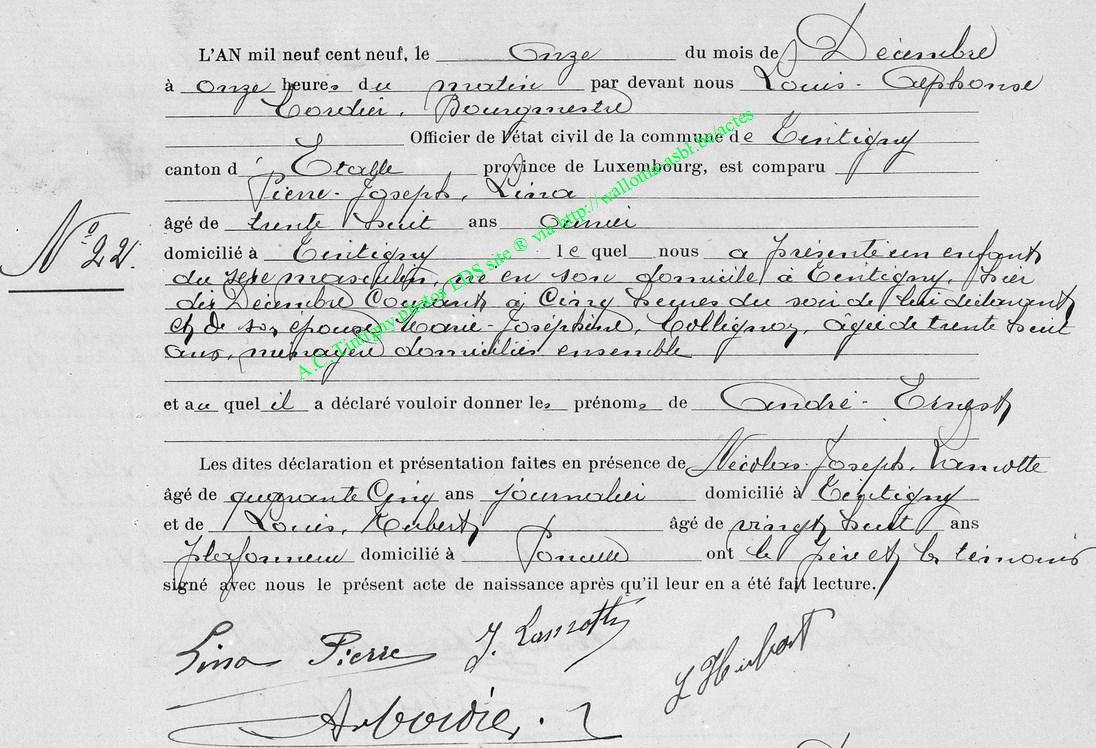 L'AN mil neuf cent neuf, le onze du mois de Décembre
à onze heures du matin par devant nous Louis-Alphonse
Cordier, Bourgmestre
Officier de l'état civil de la commune de Tintigny
canton d' Etalle province de Luxembourg, est comparu
Pierre-Joseph, Lina
âgé de trente huit ans ouvrier
domicilié à Tintigny lequel nous a présenté un enfant
N° 22.
du sexe masculin, né en son domicile à Tintigny, hier
dix Décembre Courant, à Cinq heures du soir de lui déclarant
et de son épouse Marie-Joséphine, Collignon, âgée de trente huit
ans, ménagère domiciliés ensemble
et auquel il a déclaré vouloir donner les prénoms de André-Ernest
Les dites déclaration et présentation faites en présence de Nicolas-Joseph, Lamotte
âgé de quarante Cinq ans journalier domicilié à Tintigny
et de Louis, Hubert âgé de vingt huit ans
plafonneur domicilié à Poncelle ont le père et les témoins
signé avec nous le présent acte de naissance après qu'il leur en a été fait lecture.
Lina Pierre J. Lamotte L Hubert
A Cordier.
A.C. Tintigny photos LDS site ® via http://wallonia.asbl.be/actes